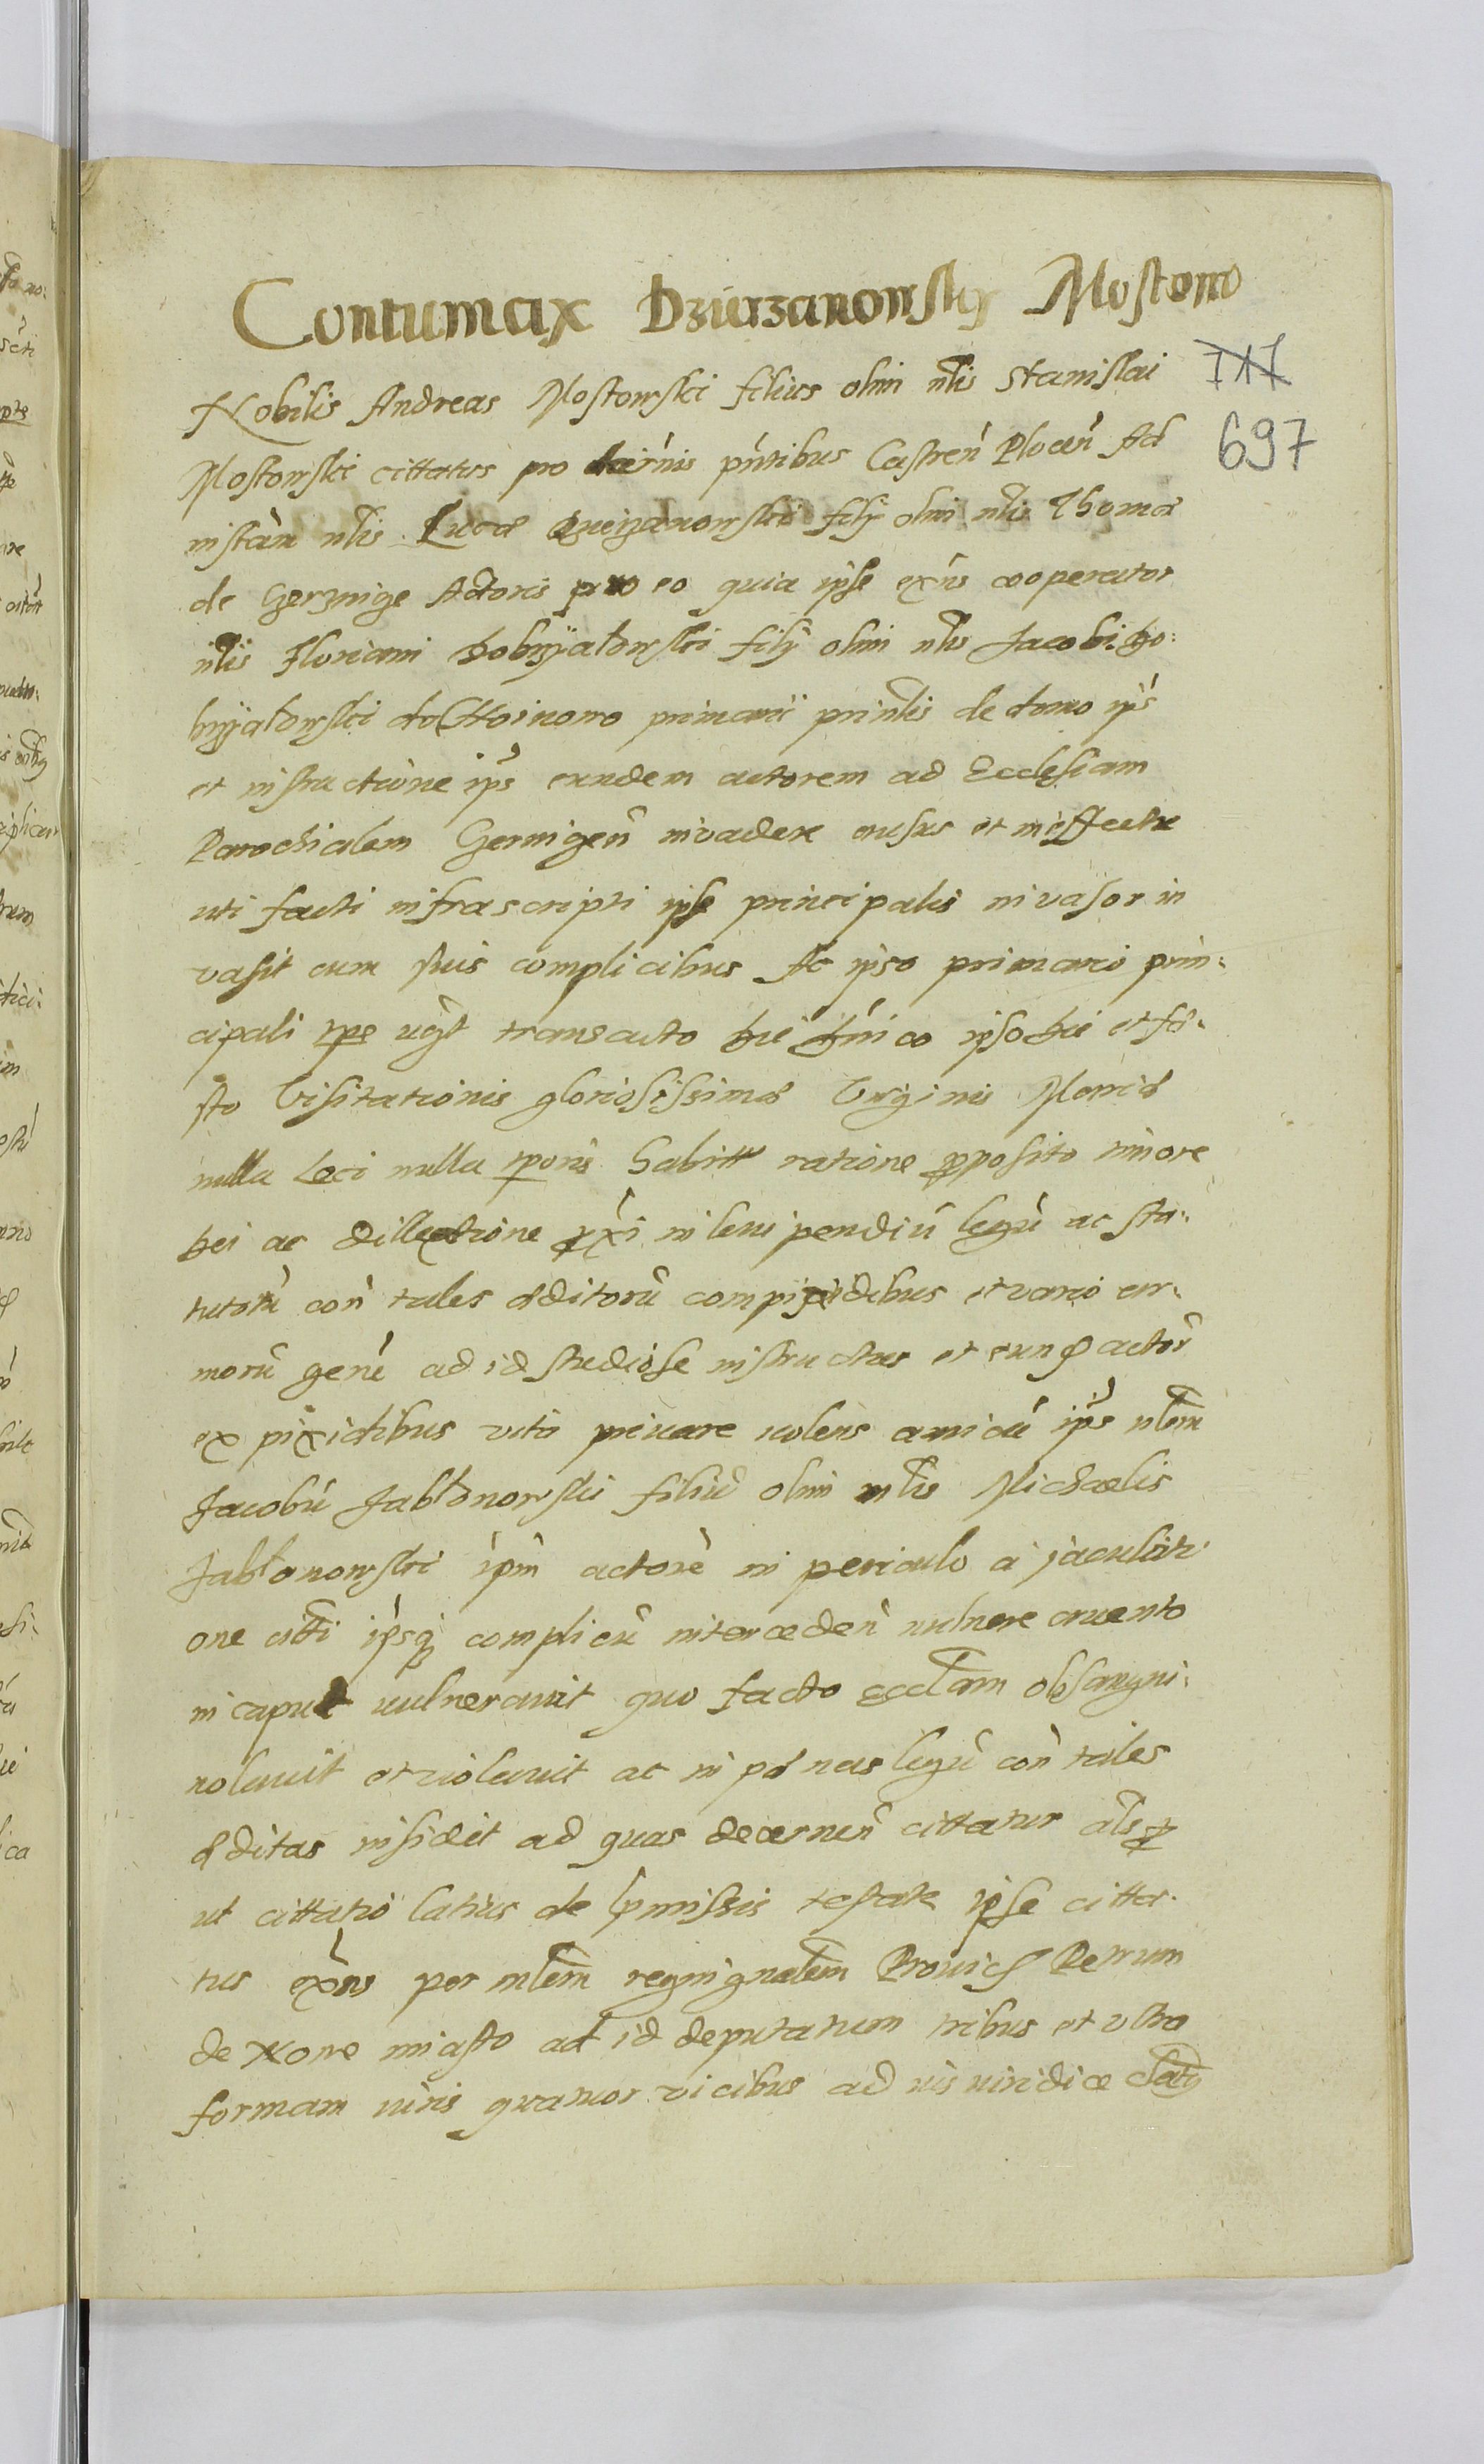 Contumax Dziurzanowsky Mostow
717
Nobilis Andreas Mostowski filius olim nlis Stanislai
697
Mostowski cittatus pro termis pntibus Castren Plocen Ad
instan nlis Lucæ Dziurzanowski filÿ olim nlis Thomæ
de Gozmige Actoris pro eo quia ipse exns cooperator
nlis Floriani Dobnÿatowski filÿ olim nlis Jacobi Do:
bnÿatowski do Choinowo primarii prinlis de domo ips
et instructione ips eundem actorem ad Ecclesiam
Parochialem Germigen inuadere ausus et in effectu
uti facti infrascripti ipse principalis inuasor in
vasit cum suis complicibus Ac ipso primario prin:
cipali tpe ugt transacto die dnico ipso die et fe:
sto Visitationis gloriosissimæ Virginis Mariæ
nulla Loci nulla tporis habitta ratione postposito timore
Dei ac dillectione pxi in leui pendiu legu ac sta:
tutoru con tales æditoru cum pixidibus et vario ar:
moru gene ad id studiose instructus et eund actore
ex pixidibus vita priuare uolens amicu ips nlem
Jacobu Jabłonowski filiu olim nlis Michaelis
Jabłonowski ipm actore in periculo a jaculati
one citti ipsq complicu interceden uulnere cruento
in caput uulnerauit quo facto Ecclam obsangui:
nolauit et uiolauit ac in pænas legu con tales
æditas insidet ad quas decernen cittatur als p
ut cittatio latius de pmissis testate ipse citta:
tus exns per nlem regni gnalem Prouid Petrum
de none miasto ad id deputatum tribus et vltra
formam iuris quatuor vicibus ad iis iuridice clats